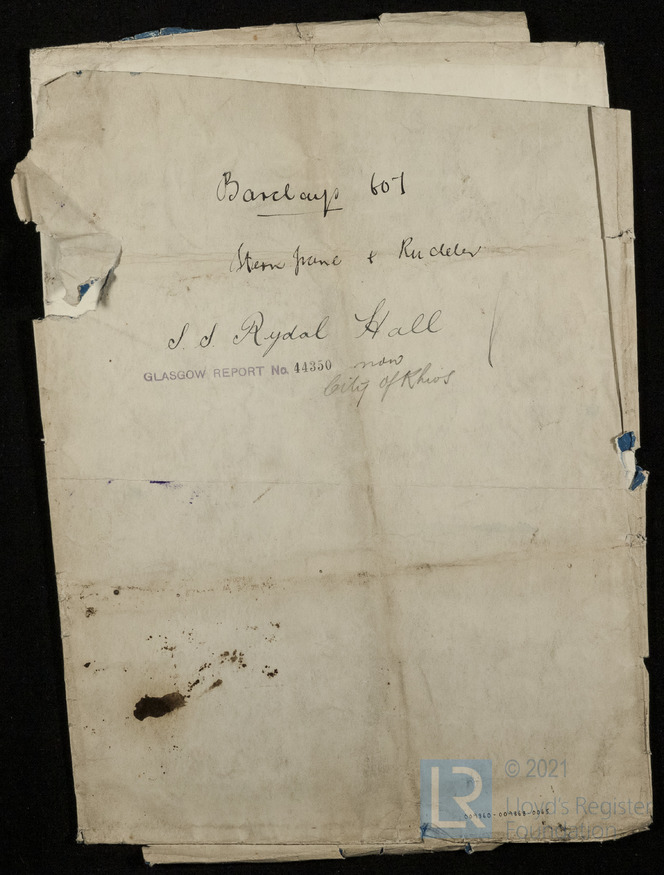 Barclays 607
Stern frame & Rudder
S. S. Rydal Hall
GLASGOW REPORT No. 44350 now
City of Khios
LR
© 2021
Lloyd's Register
Foundation